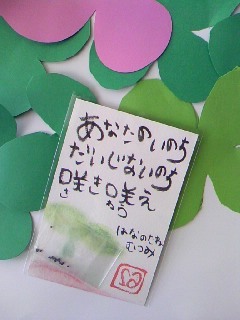 あなたのいのち
だいじないのち
咲き咲え
さ わら
はなのたね
むつみ